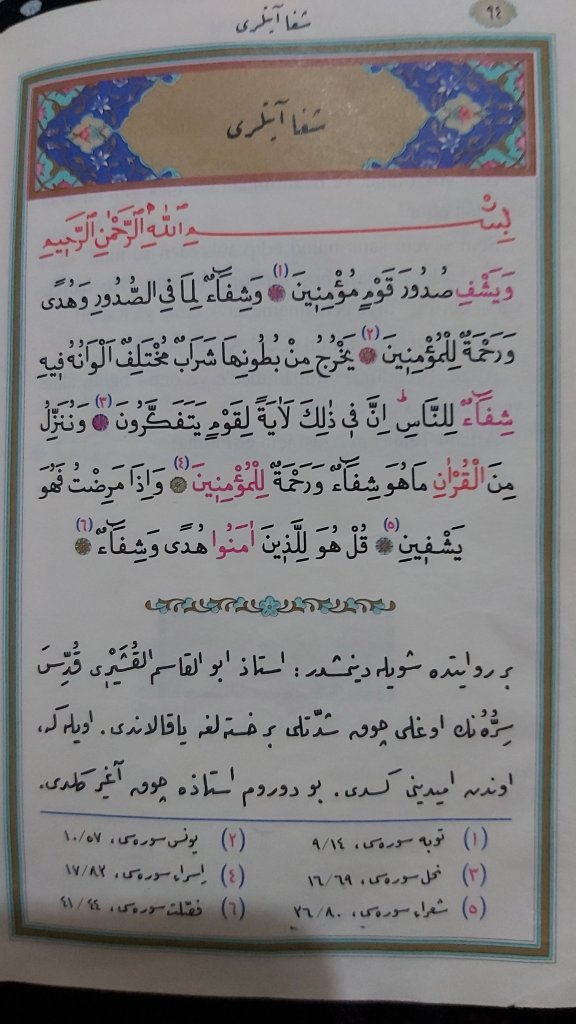 شفا آيتلرى
٩٤
شفا آيتلرى
بِسْمِ اللّٰهِ الرَّحْمٰنِ الرَّحِيمِ
وَيَشْفِ صُدُورَ قَوْمٍ مُؤْمِنِينَ (١) وَشِفَاءٌ لِمَا فِى الصُّدُورِ وَهُدًى
وَرَحْمَةٌ لِلْمُؤْمِنِينَ (٢) يَخْرُجُ مِنْ بُطُونِهَا شَرَابٌ مُخْتَلِفٌ اَلْوَانُهُ فِيهِ
شِفَاءٌ لِلنَّاسِ ط اِنَّ فِى ذٰلِكَ لَاٰيَةً لِقَوْمٍ يَتَفَكَّرُونَ (٣) وَنُنَزِّلُ
مِنَ الْقُرْاٰنِ مَا هُوَ شِفَاءٌ وَرَحْمَةٌ لِلْمُؤْمِنِينَ (٤) وَاِذَا مَرِضْتُ فَهُوَ
يَشْفِينِ (٥) قُلْ هُوَ لِلَّذِينَ اٰمَنُوا هُدًى وَشِفَاءٌ (٦)
بر روايتده شويله دينمشدر : استاذ ابو القاسم القُشَيْرِى قُدِّسَ
سِرُّهُ نك اوغلى چوق شدّتلى بر خسته لغه ياقالاندى. اويله كه،
اوندن اميدينى كسدى. بو دوروم استاذه چوق آغير كلدى.
(١) توبه سوره سى، ٩/١٤ (٢) يونس سوره سى، ١٠/٥٧
(٣) نحل سوره سى، ١٦/٦٩ (٤) اسراء سوره سى، ١٧/٨٢
(٥) شعراء سوره سى، ٢٦/٨٠ (٦) فصّلت سوره سى، ٤١/٤٤